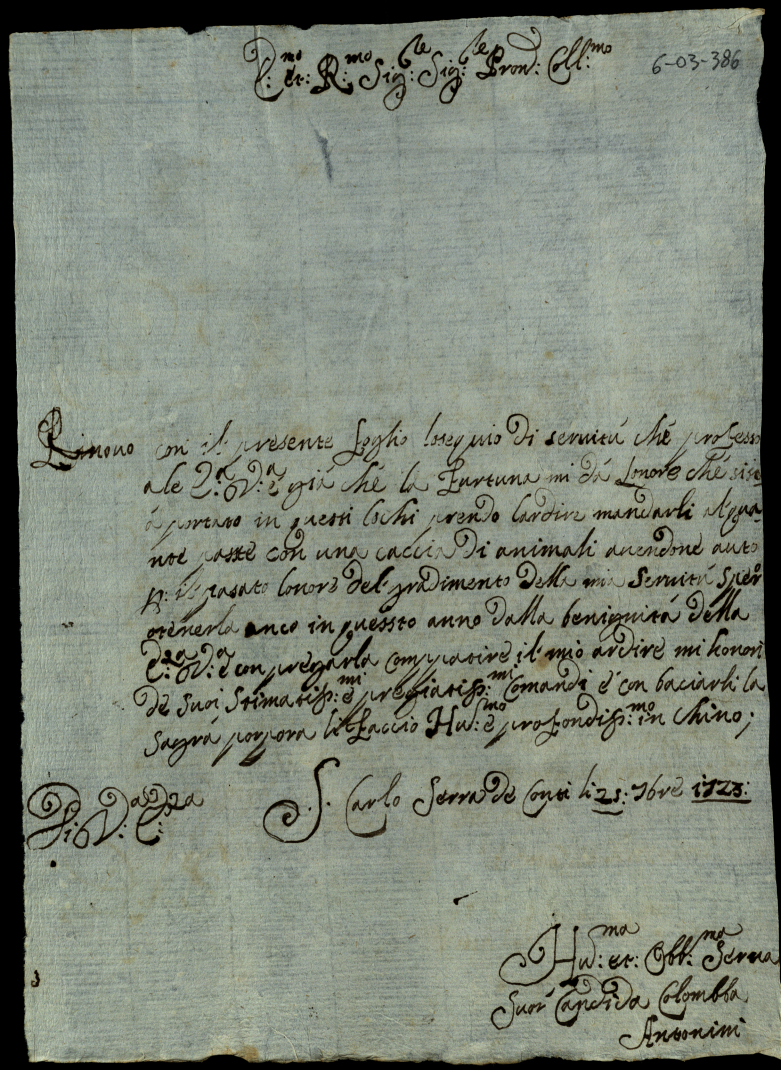 E:mo et: R:mo Sig:le Sig:le Pron: Coll:mo
6-03-386
Rinovo con il presente foglio losequio di servitú ché professo
ale E.a V.a é giá ché la furtuna mi dá lonore ché si é
á portato in questi lochi prendo lardire mandarli alqua-
nte paste con una caccia di animali avendone auto
p: il pasato lonore del gradimento della mia servitú spero
otenerla anco in quessto anno dalla benignitá della
E:za V:a é con pregarla compatire il mio ardire mi honori
de suoi stimatiss:mi é pregiatiss:mi Comandi é con baciarli la
sagrá porpora li faccio Hu:mo é profondiss:mo in chino;
Di V:a E:za
S. Carlo Serra de Conti li 25: 7bre 1723:
Hu:ma et: Obb:ma Serva
Suor Candida Colombba
Antonini
3